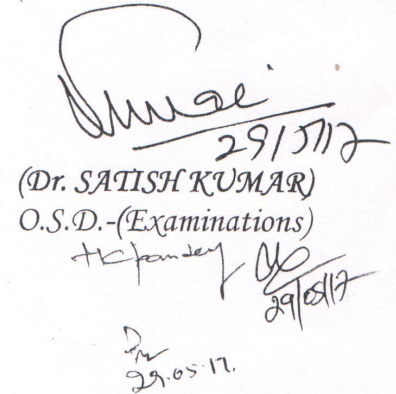 29/5/17
(Dr. SATISH KUMAR)
O.S.D.-(Examinations)
29/05/17
29.05.17.